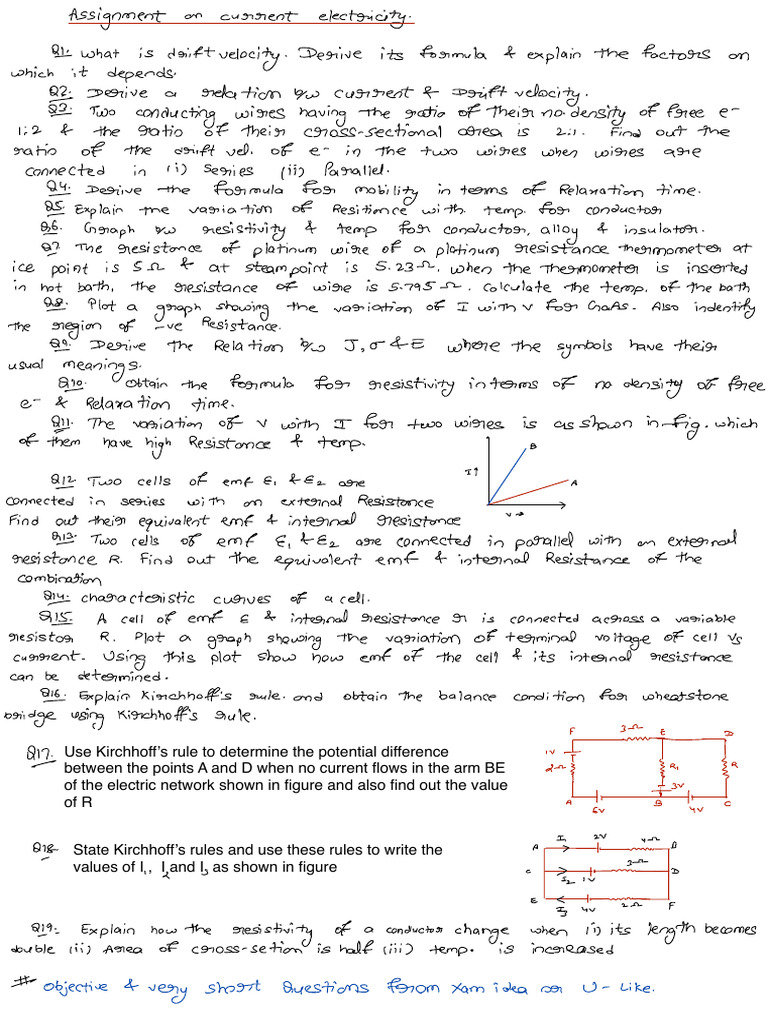 Assignment on current electricity.
Q1. what is drift velocity. Derive its formula & explain the factors on
which it depends.
Q2. Derive a relation b/w current & Drift velocity.
Q3. Two conducting wires having the ratio of their no. density of free e-
1:2 & the ratio of their cross-sectional area is 2:1. Find out the
ratio of the drift vel. of e- in the two wires when wires are
connected in (i) Series (ii) Parallel.
Q4. Derive the formula for mobility in terms of Relaxation time.
Q5. Explain the variation of Resitance with. temp. for conductor
Q6. Graph b/w resistivity & temp for conductor, alloy & insulator.
Q7 The resistance of platinum wire of a platinum resistance thermometer at
ice point is 5 Ω & at steam point is 5.23 Ω. when the thermometer is inserted
in hot bath, the resistance of wire is 5.795 Ω. Calculate the temp. of the bath
Q8. Plot a graph showing the variation of I with V for GaAs. Also indentify
the region of -ve Resistance.
Q9. Derive The Relation b/w J, σ & E where the symbols have their
usual meanings.
Q10. Obtain the formula for resistivity in terms of no density of free
e- & Relaxation time.
Q11. The variation of V with I for two wires is as shown in fig. which
of them have high Resistance & temp.
B
I↑
A
V→
Q12 Two cells of emf E1 & E2 are
connected in series with an external Resistance
Find out their equivalent emf & internal resistance
Q13. Two cells of emf E1 & E2 are connected in parallel with an external
resistance R. Find out the equivalent emf & internal Resistance of the
combination
Q14. characteristic curves of a cell.
Q15. A cell of emf E & internal resistance r is connected across a variable
resistor R. Plot a graph showing the variation of terminal voltage of cell vs
current. Using this plot show how emf of the cell & its internal resistance
can be determined.
Q16. Explain Kirchhoff's rule. and obtain the balance condition for wheatstone
bridge using Kirchhoff's rule.
Q17. Use Kirchhoff's rule to determine the potential difference
between the points A and D when no current flows in the arm BE
of the electric network shown in figure and also find out the value
of R
F 3Ω E D
1V
2Ω R1 R
3V
A B C
6V 4V
Q18 State Kirchhoff's rules and use these rules to write the
values of I1, I2 and I3 as shown in figure
A I1 2V 4Ω B
C I2 1V 3Ω D
E I3 4V 2Ω F
Q19. Explain how the resistivity of a conductor change when (i) its length becomes
double (ii) Area of cross-setion is half (iii) temp. is increased
# Objective & very short Questions from Xam idea or U-Like.